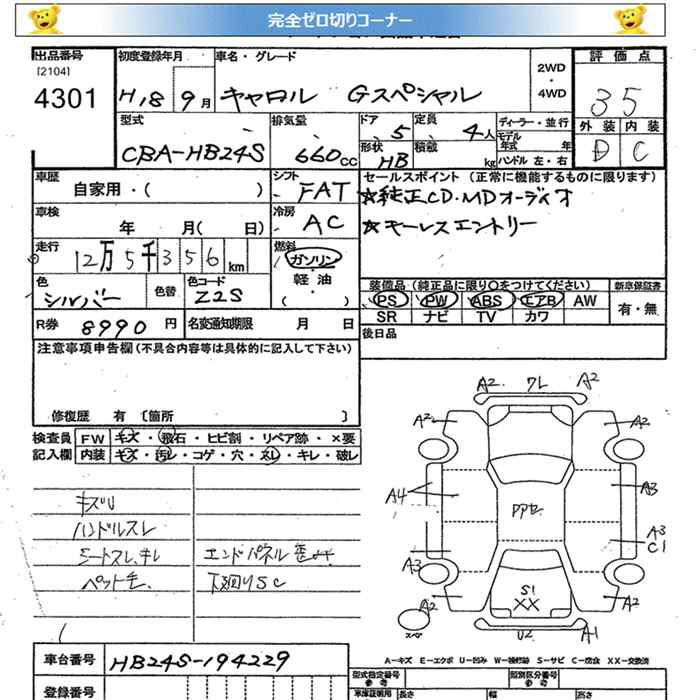 完全ゼロ切りコーナー
出品番号 初度登録年月 車名・グレード 2WD・4WD 評価点
[2104]
4301 H18 9月 キャロル Gスペシャル 35
外装 内装
D C
型式 排気量 ドア 定員 ディーラー・並行
CBA-HB24S 660cc 5 4人 モデル年式 年
形状 HB 積載 kg ハンドル 左・右
車歴 自家用・( ) シフト FAT セールスポイント (正常に機能するものに限ります)
☆純正CD・MDオーディオ
車検 年 月( 日) 冷房 AC ☆キーレスエントリー
走行 12万5千356km 燃料 ガソリン・軽油・( )
色 シルバー 色替 色コード Z2S
装備品 (純正品に限り○をつけてください) 新車保証書
PS PW ABS エアB AW 有・無
SR ナビ TV カワ
R券 8990円 名変通知期限 月 日 後日品
注意事項申告欄 (不具合内容等は具体的に記入して下さい)
修復歴 有 〔箇所 〕
検査員記入欄 FW キズ・飛石・ヒビ割・リペア跡・×要
内装 キズ・汚レ・コゲ・穴・スレ・キレ・破レ
キズU
ハンドルスレ
シートスレ、キレ エンドパネル
ペット毛 下廻りSC
A2 ワレ A2
A2 A2
A4 PPセ A3
A3 A3
C1
S1
XX
A2 A2
スペア U2 A1
A-キズ E-エクボ U-凹み W-補修跡 S-サビ C-腐食 XX-交換済
車台番号 HB24S-194229
登録番号
型式指定番号 参考 類別区分番号 参考
車庫証明用 長さ 幅 高さ